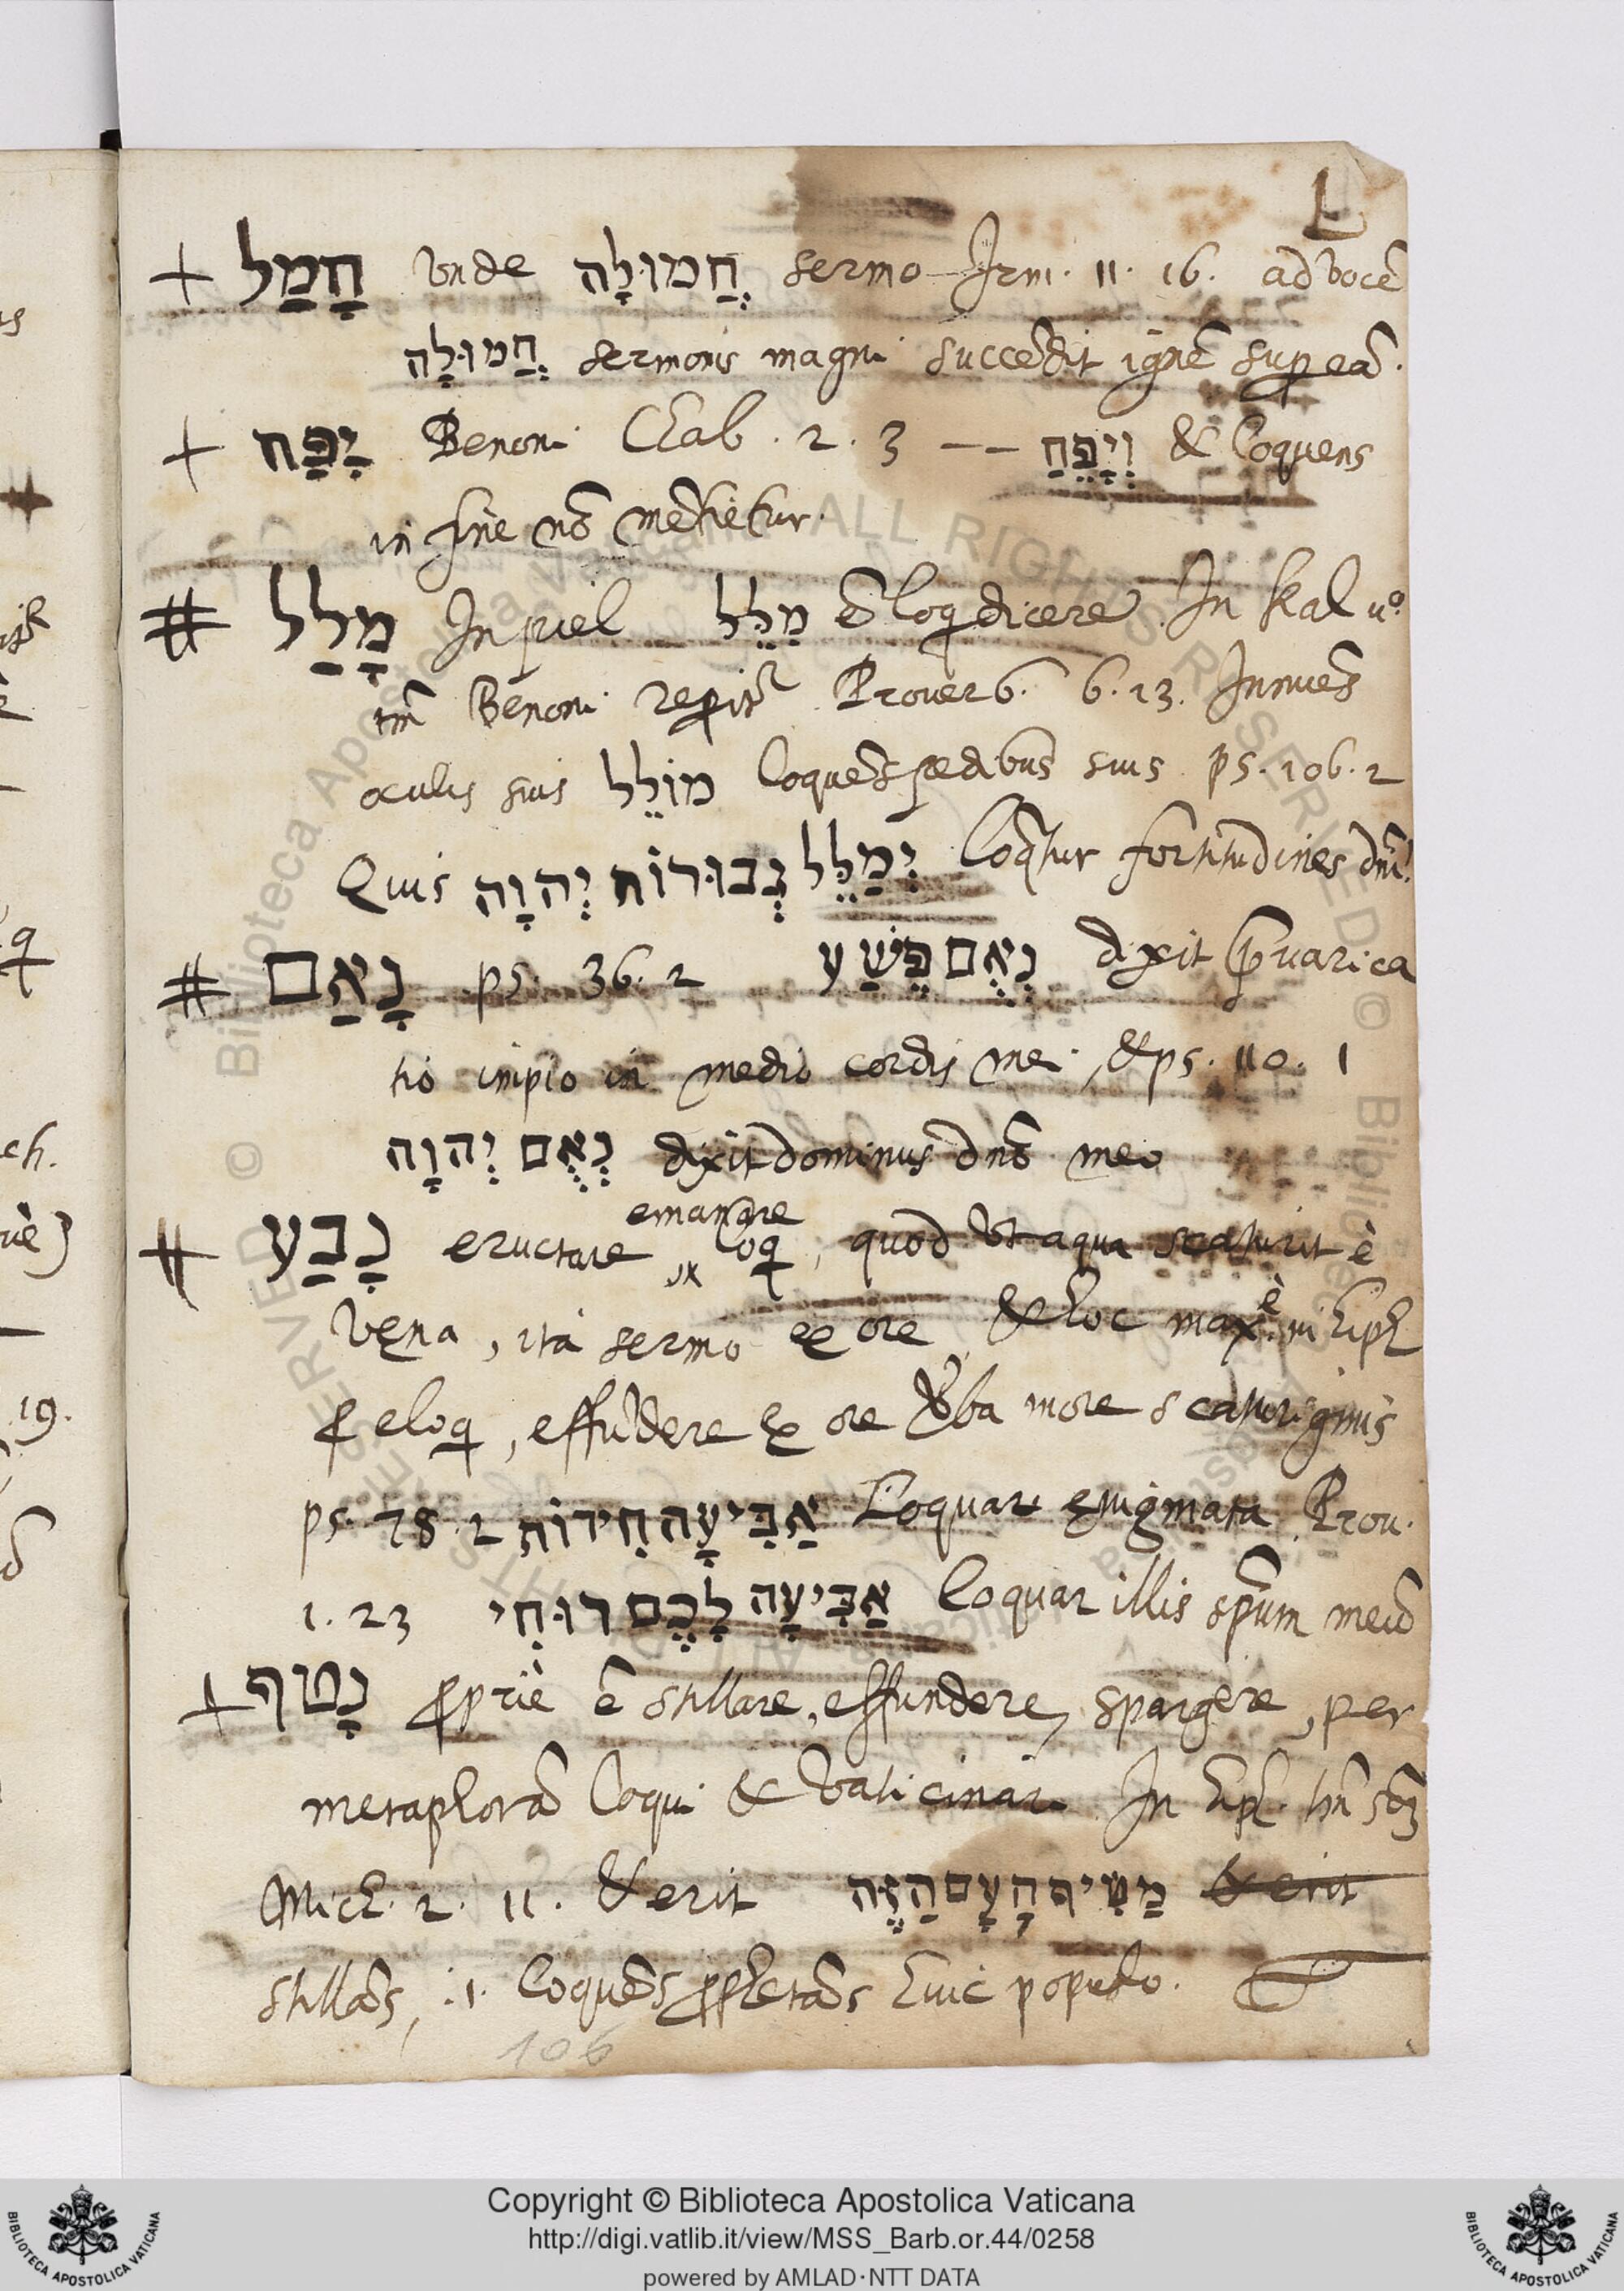 L
+ חָמַל vnde חֲמוּלָה sermo Irm. 11. 16. ad vocẽ
חֲמוּלָה sermonis magni succẽdit ignẽ sup eã.
+ יָפַח Benoni Chab. 2. 3 -- וְיָפֵחַ & loquens
in fine nõ mẽtietur.
# מָלַל In piel מִלֵּל ẽ loq dicere In kal uº
tm̃ Benoni repit' Prouerb. 6. 13. Innuẽs
oculis suis מוֹלֵל loquẽs pedibus suis ps. 106. 2
Quis יְמַלֵּל גְּבוּרוֹת יְהוָה loq̃tur fortitudines dñi
# נָאַם ps. 36. 2 נְאֻם פֶּשַׁע dixit p̃uarica
tio impio in medio cordis mei, & ps. 110. 1
נְאֻם יְהוָה dixit dominus dñõ meo
emanare
# נָבַע eructare, loq, quod vt aqua scaturit è
vena, ita sermo ex ore & hoc maxè. in hiph
eloq, effũdere ex ore v̉ba more scaturiginis
ps. 78. 2 אַבִּיעָה חִידוֹת Loquar enigmata Prou.
1. 23 אַבִּיעָה לָכֶם רוּחִי loquar illis spũm meũ
+ נָטַף propriè ẽ stillare, effundere, spargere, per
metaphorã loqui & vaticinari In hiph. tm̃
Mich. 2. 11. & erit מַטִּיף הָעָם הַזֶּה & erit
stillãs, .i. loquẽs prophetãs huic populo.
106
Copyright © Biblioteca Apostolica Vaticana
http://digi.vatlib.it/view/MSS_Barb.or.44/0258
powered by AMLAD·NTT DATA